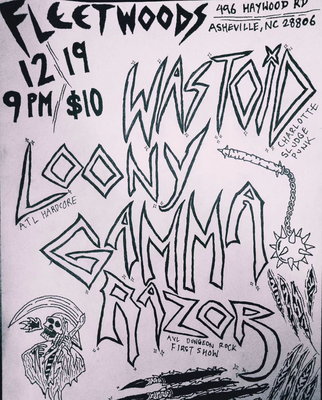 FLEETWOODS
496 HAYWOOD RD
ASHEVILLE, NC 28806
12/19
9 PM/$10
WASTOID
CHARLOTTE
SLUDGE
PUNK
LOONY
ATL HARDCORE
GAMMA
RAZOR
AVL DUNGEON ROCK
FIRST SHOW